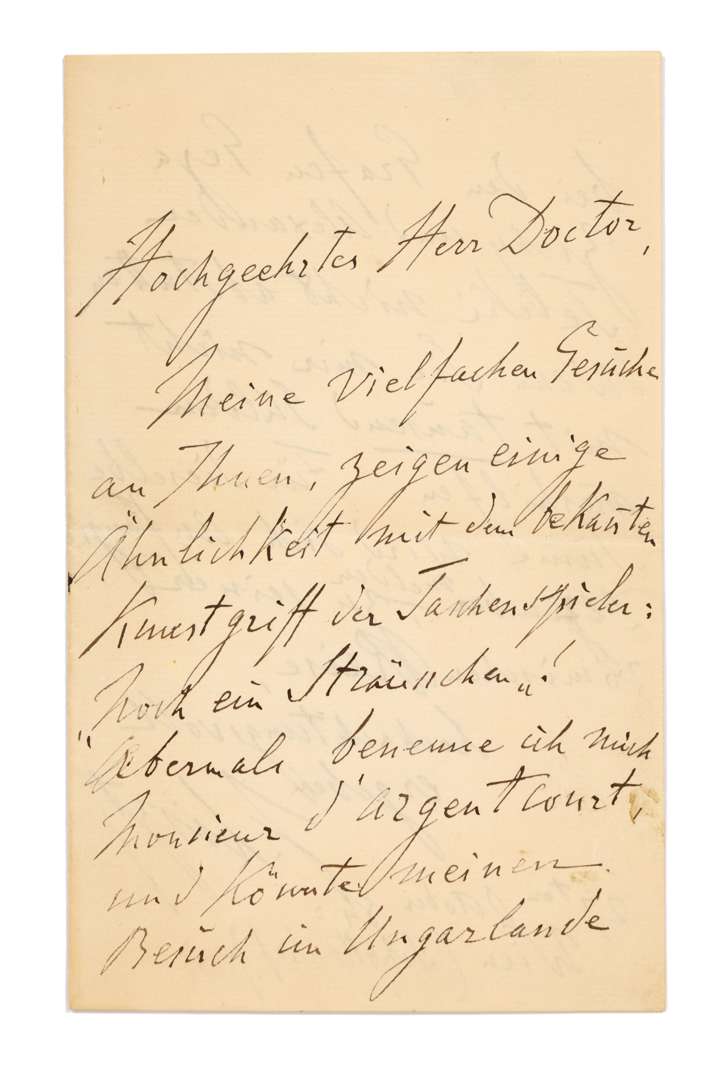 Hochgeehrter Herr Doctor,
Meine vielfachen Gesuche
an Ihnen, zeigen einige
Ähnlichkeit mit dem bekañten
Kunstgriff der Taschenspieler:
„noch ein Sträusschen“!
Abermals benenne ich mich
Monsieur d'argentcourt,
und könnte meinen
Besuch im Ungarlande